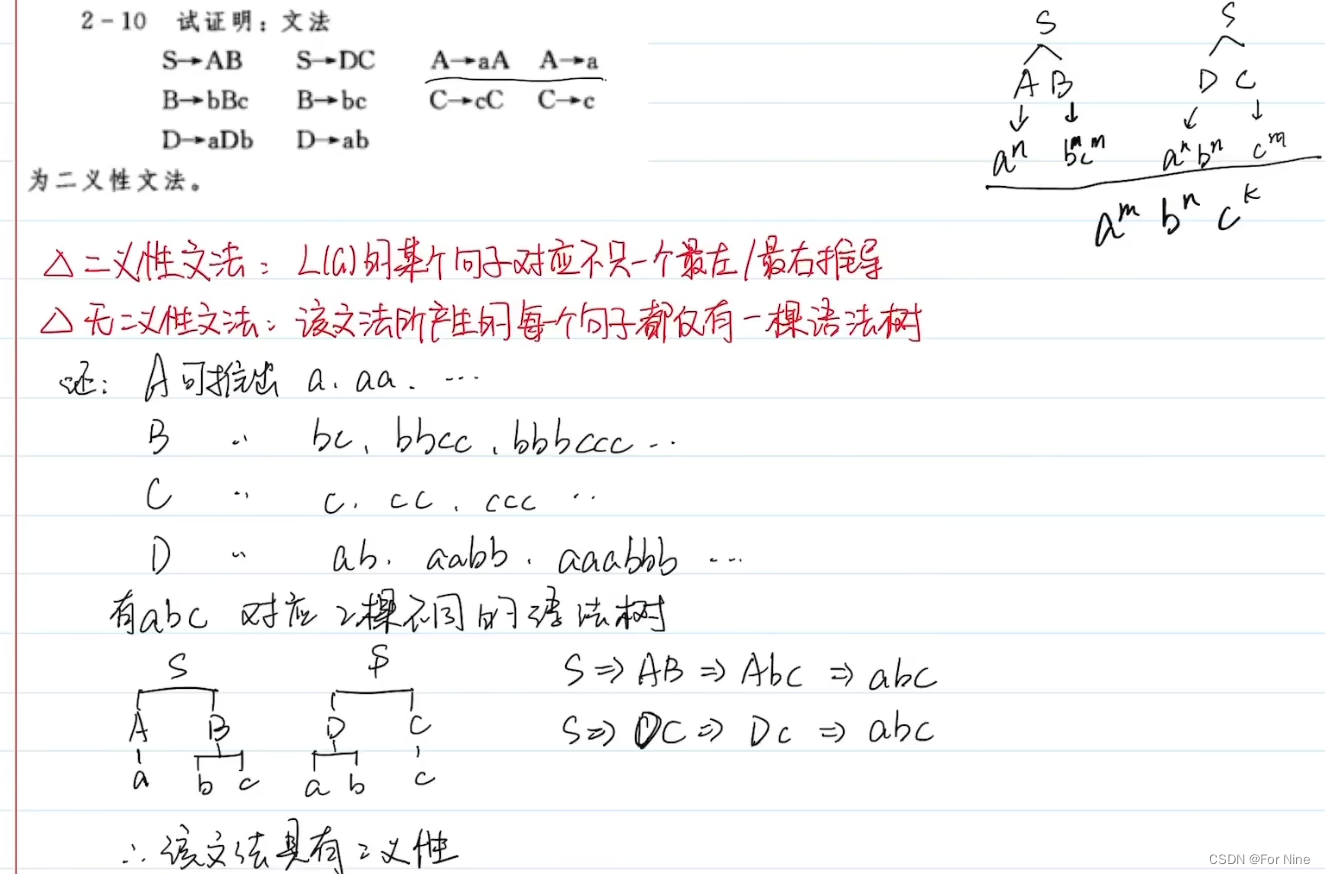 2-10 试证明：文法
S→AB S→DC A→aA A→a
B→bBc B→bc C→cC C→c
D→aDb D→ab
为二义性文法。
S
A B
aⁿ bᵐcᵐ
S
D C
aⁿbⁿ cᵐ
aᵐ bⁿ cᵏ
△二义性文法：L(G)的某个句子对应不只一个最左/最右推导
△无二义性文法：该文法所产生的每个句子都仅有一棵语法树
证：A可推出 a、aa、…
B 〃 bc、bbcc、bbbccc…
C 〃 c、cc、ccc…
D 〃 ab、aabb、aaabbb…
有abc 对应2棵不同的语法树
S S
A B D C
a b c a b c
S⇒AB⇒Abc⇒abc
S⇒DC⇒Dc⇒abc
∴该文法具有二义性
CSDN @For Nine